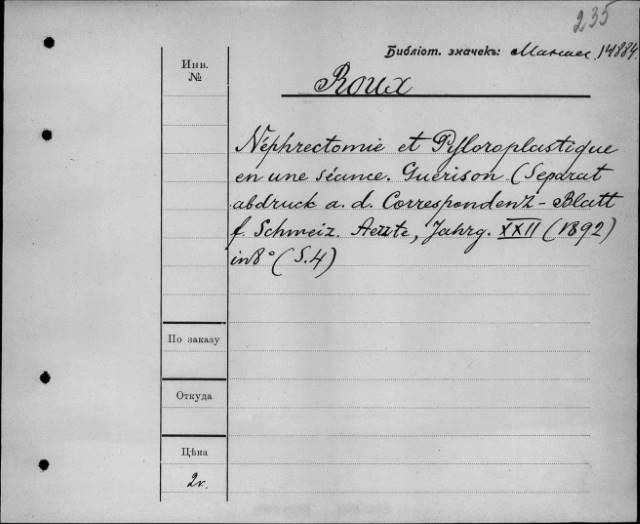 235
Библіот. значекъ: 14884.
Инв.
№
Roux
Néphrectomie et Pyloroplastique
en une séance. Guérison (Separat
abdruck a. d. Correspondenz-Blatt
f. Schweiz. Aerzte, Jahrg. XXII (1892)
in 8° (S. 4)
По заказу
Откуда
Цѣна
2к.